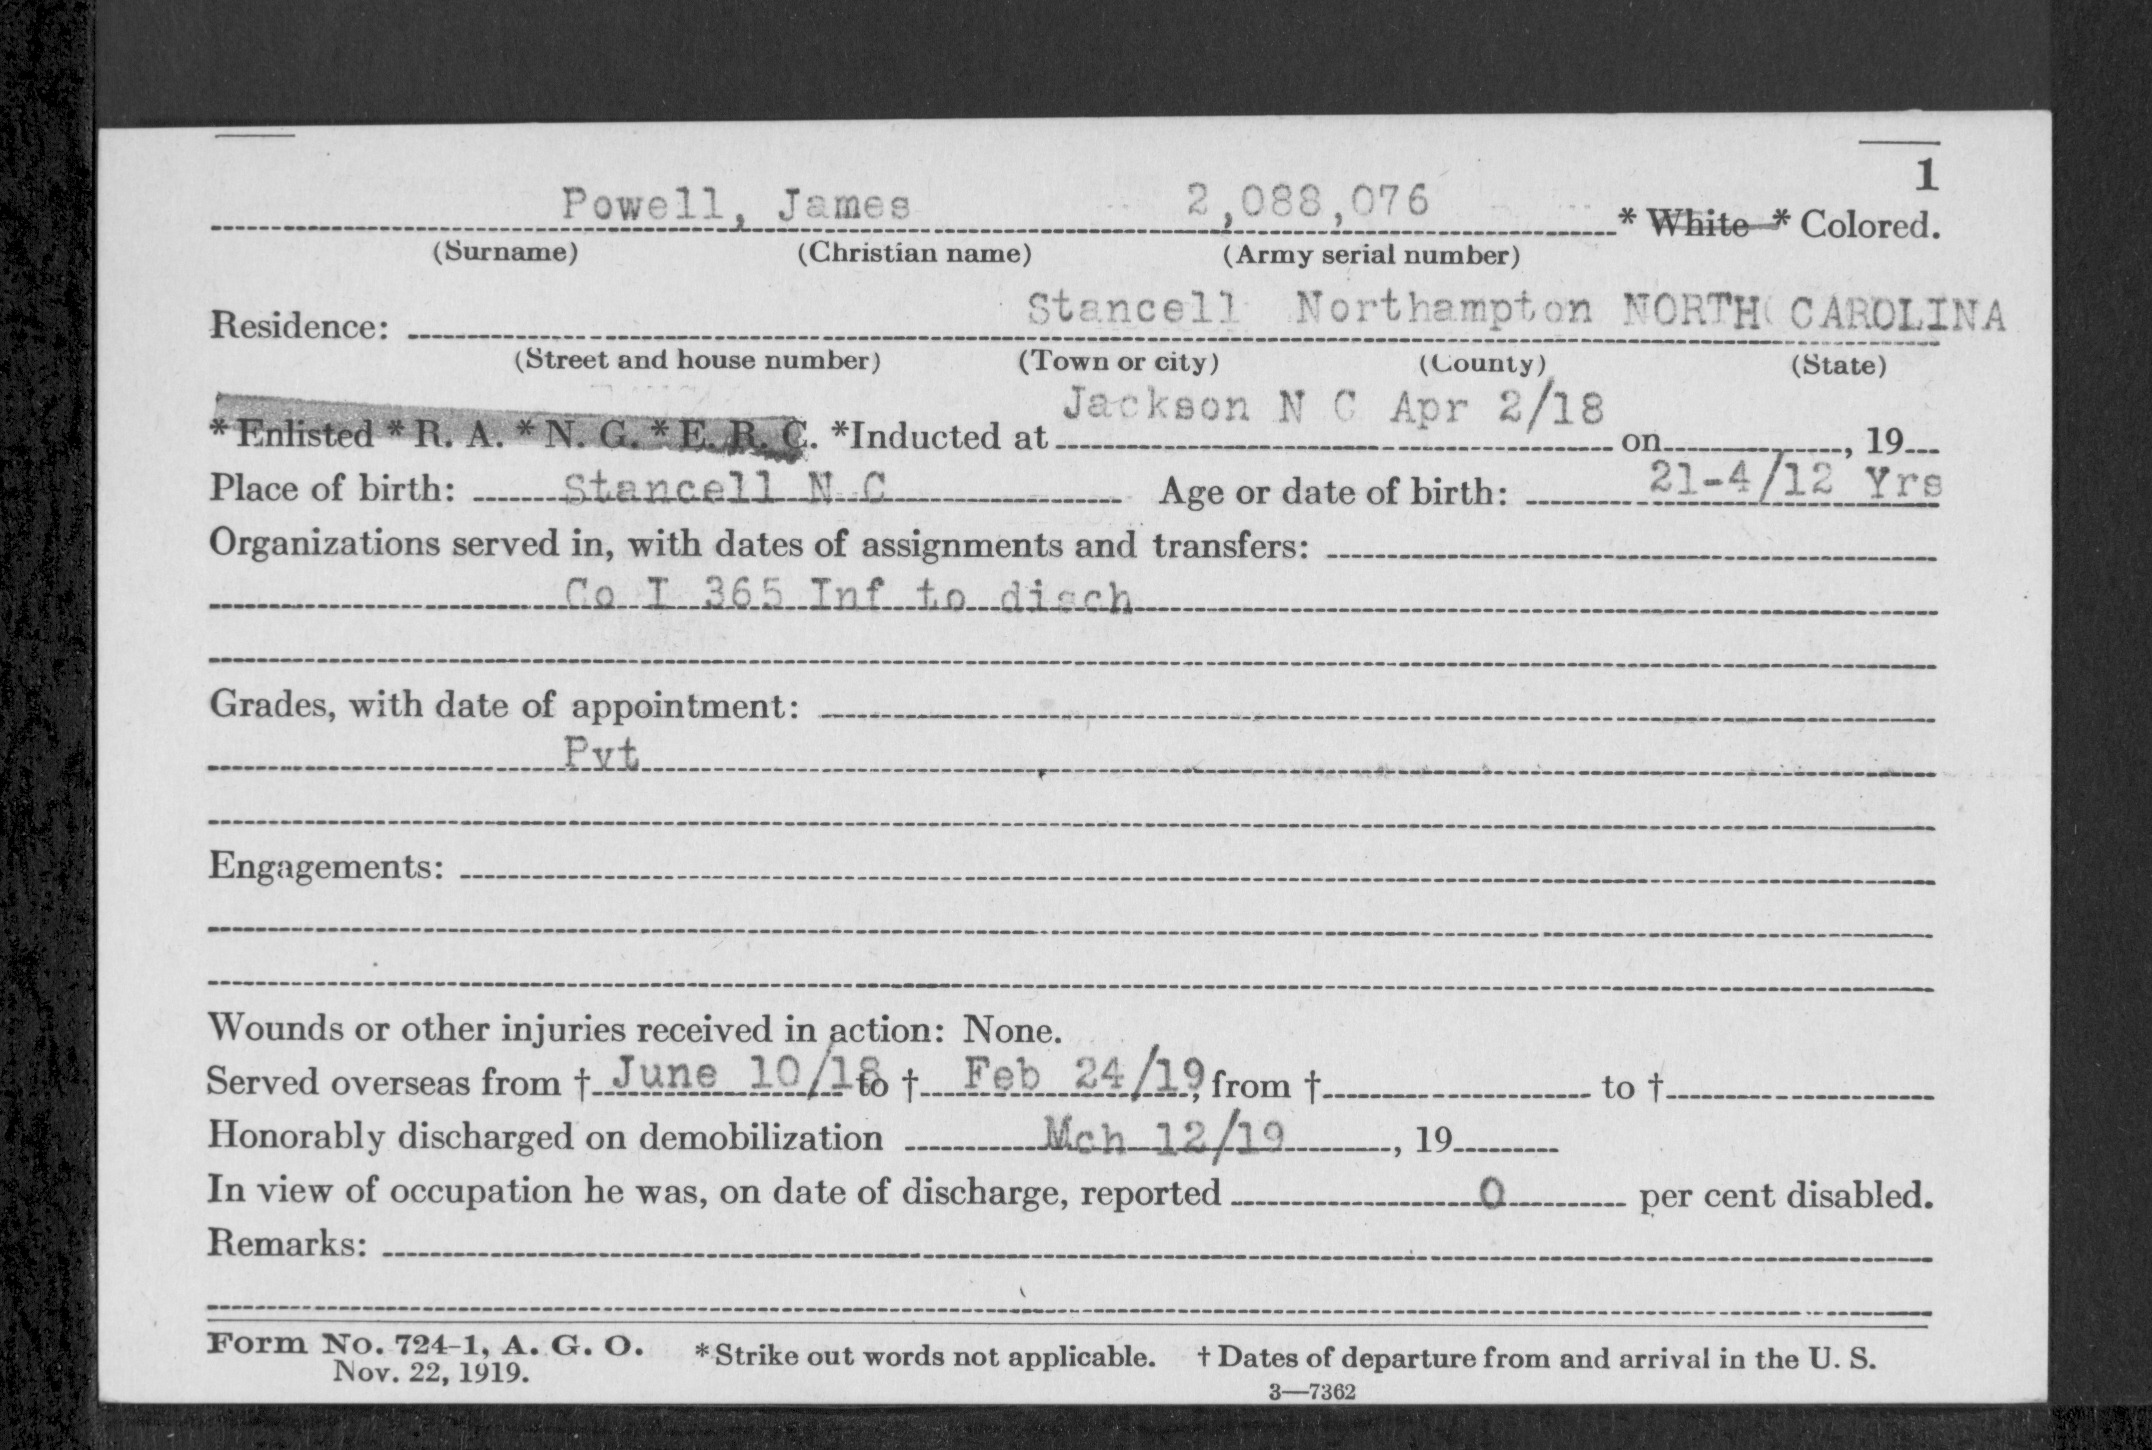 1
Powell, James 2,088,076 * White * Colored.
(Surname) (Christian name) (Army serial number)
Residence: Stancell Northampton NORTH CAROLINA
(Street and house number) (Town or city) (County) (State)
* Enlisted * R. A. * N. G. * E. R. C. *Inducted at Jackson N C Apr 2/18 on , 19
Place of birth: Stancell N C Age or date of birth: 21-4/12 Yrs
Organizations served in, with dates of assignments and transfers:
Co I 365 Inf to disch
Grades, with date of appointment:
Pvt
Engagements:
Wounds or other injuries received in action: None.
Served overseas from † June 10/18 to † Feb 24/19, from † to †
Honorably discharged on demobilization Mch 12/19 , 19
In view of occupation he was, on date of discharge, reported 0 per cent disabled.
Remarks:
Form No. 724-1, A. G. O. *Strike out words not applicable. † Dates of departure from and arrival in the U. S.
Nov. 22, 1919.
3—7362